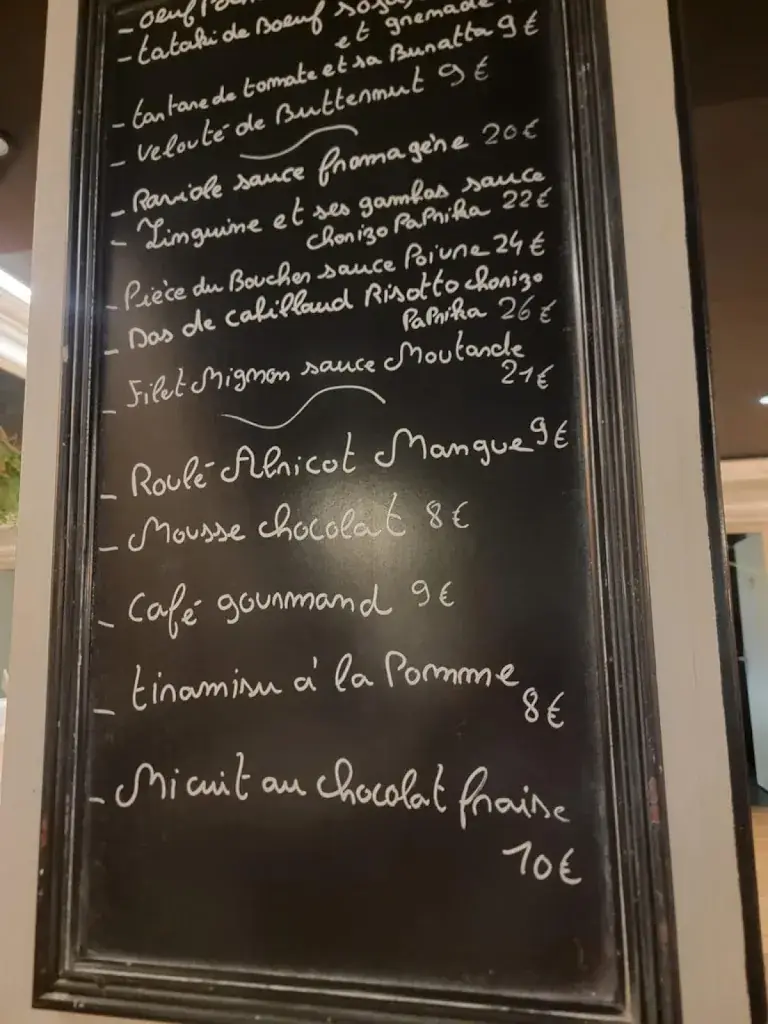 - oeuf
- tataki de Boeuf
et grenade
- tartare de tomate et sa Buratta 9€
- Velouté de Butternut 9€
- Raviole sauce fromagère 20€
- Linguine et ses gambas sauce
chorizo Paprika 22€
- Pièce du Boucher sauce Poivre 24€
- Dos de cabillaud Risotto chorizo
Paprika 26€
- Filet Mignon sauce Moutarde
21€
- Roulé Abricot Mangue 9€
- Mousse chocolat 8€
- Café gourmand 9€
- tiramisu à la Pomme
8€
- Mi cuit au chocolat fraise
10€